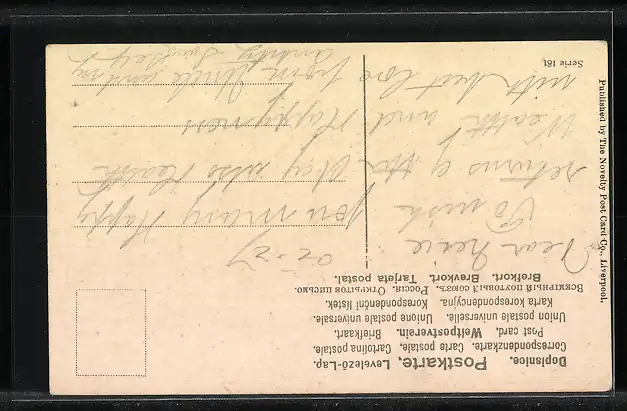 Dopisnice. Postkarte, Levelező-Lap,
Correspondenzkarte. Carte postale, Cartolina postale.
Post card. Weltpostverein. Briefkaart.
Union postale universelle. Unione postale universale.
Karta korespondencyjna. Korespondenční lístek.
Всемірный почтовый союзъ. Россія. Открытое письмо.
Brefkort. Brevkort. Tarjeta postal.
Dear Neice
To wish you many Happy
returns of the Day also Health
Wealth and Happyness
with best love from Uncle and
Serie 181.
Published by The Novelty Post Card Co., Liverpool.